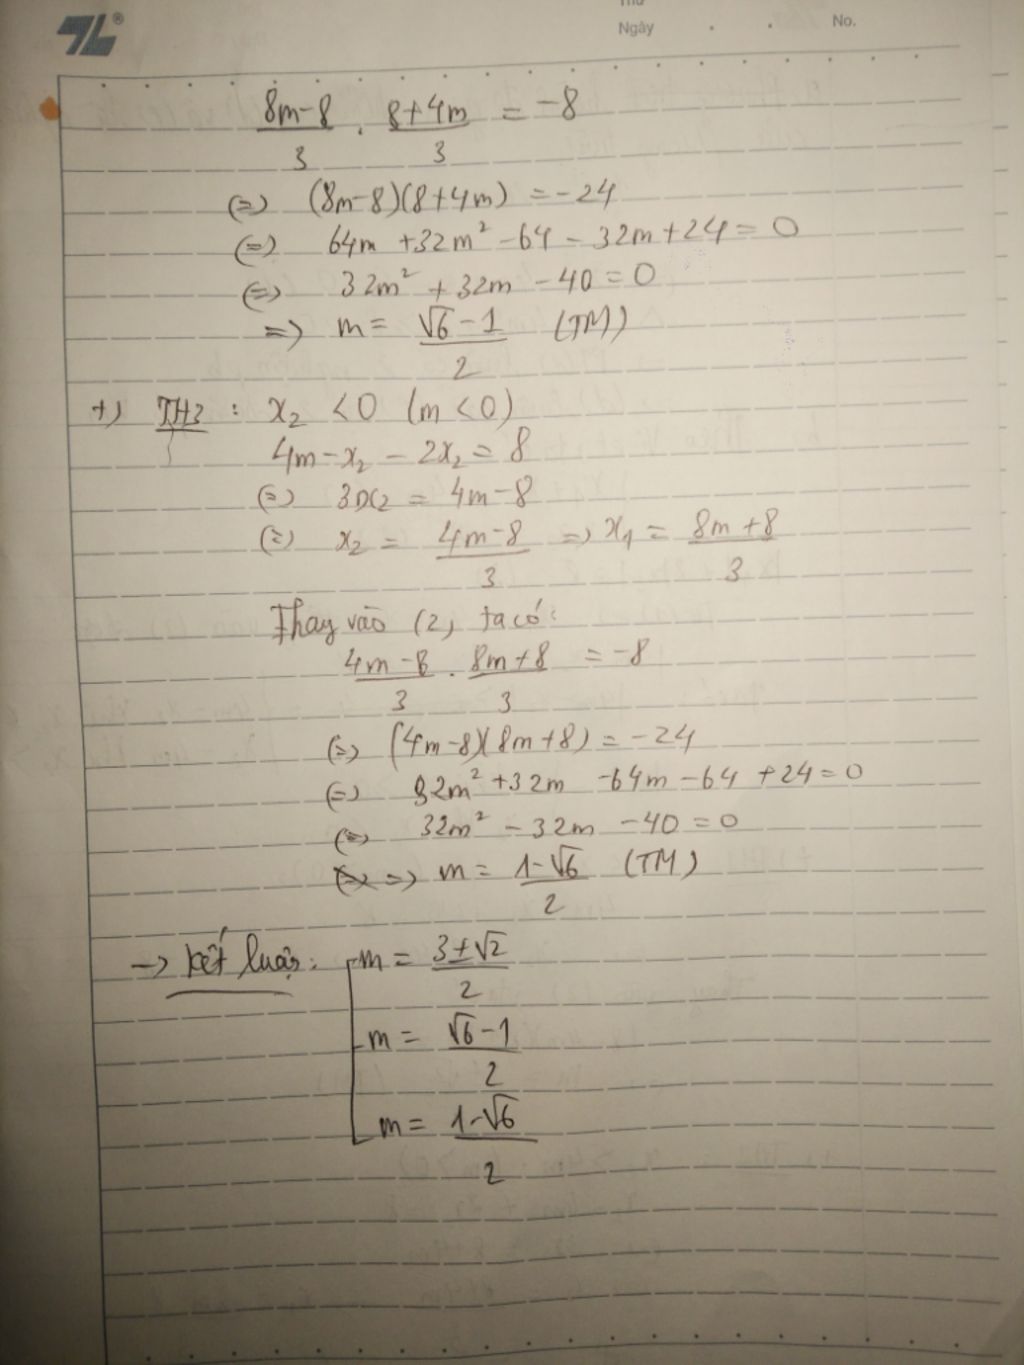 Thứ
Ngày . . No.
(8m-8)/3 . (8+4m)/3 = -8
(=) (8m-8)(8+4m) = -24
(=) 64m +32m² -64 - 32m +24 = 0
(=) 32m² + 32m - 40 = 0
=> m = (√6 - 1)/2 (TM)
+) TH2 : x₂ < 0 (m < 0)
4m - x₂ - 2x₂ = 8
(=) 3x₂ = 4m - 8
(=) x₂ = (4m-8)/3 => x₁ = (8m+8)/3
Thay vào (2), ta có:
(4m-8)/3 . (8m+8)/3 = -8
(=) (4m-8)(8m+8) = -24
(=) 32m² +32m -64m -64 +24 = 0
(=) 32m² - 32m - 40 = 0
=> m = (1-√6)/2 (TM)
-> Kết luận: m = (3±√2)/2
m = (√6-1)/2
m = (1-√6)/2